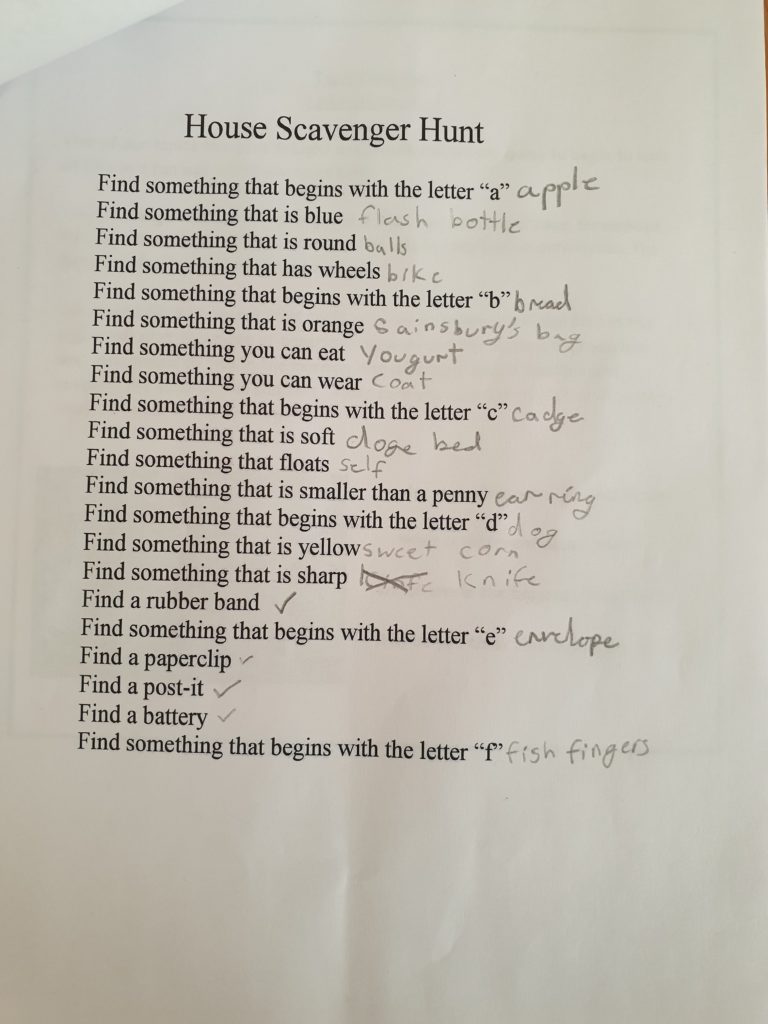 House Scavenger Hunt
Find something that begins with the letter “a” apple
Find something that is blue flash bottle
Find something that is round balls
Find something that has wheels bike
Find something that begins with the letter “b” bread
Find something that is orange Sainsbury's bag
Find something you can eat Yougurt
Find something you can wear coat
Find something that begins with the letter “c” cadge
Find something that is soft doge bed
Find something that floats self
Find something that is smaller than a penny earring
Find something that begins with the letter “d” dog
Find something that is yellow sweet corn
Find something that is sharp knife
Find a rubber band ✓
Find something that begins with the letter “e” envelope
Find a paperclip ✓
Find a post-it ✓
Find a battery ✓
Find something that begins with the letter “f” fish fingers